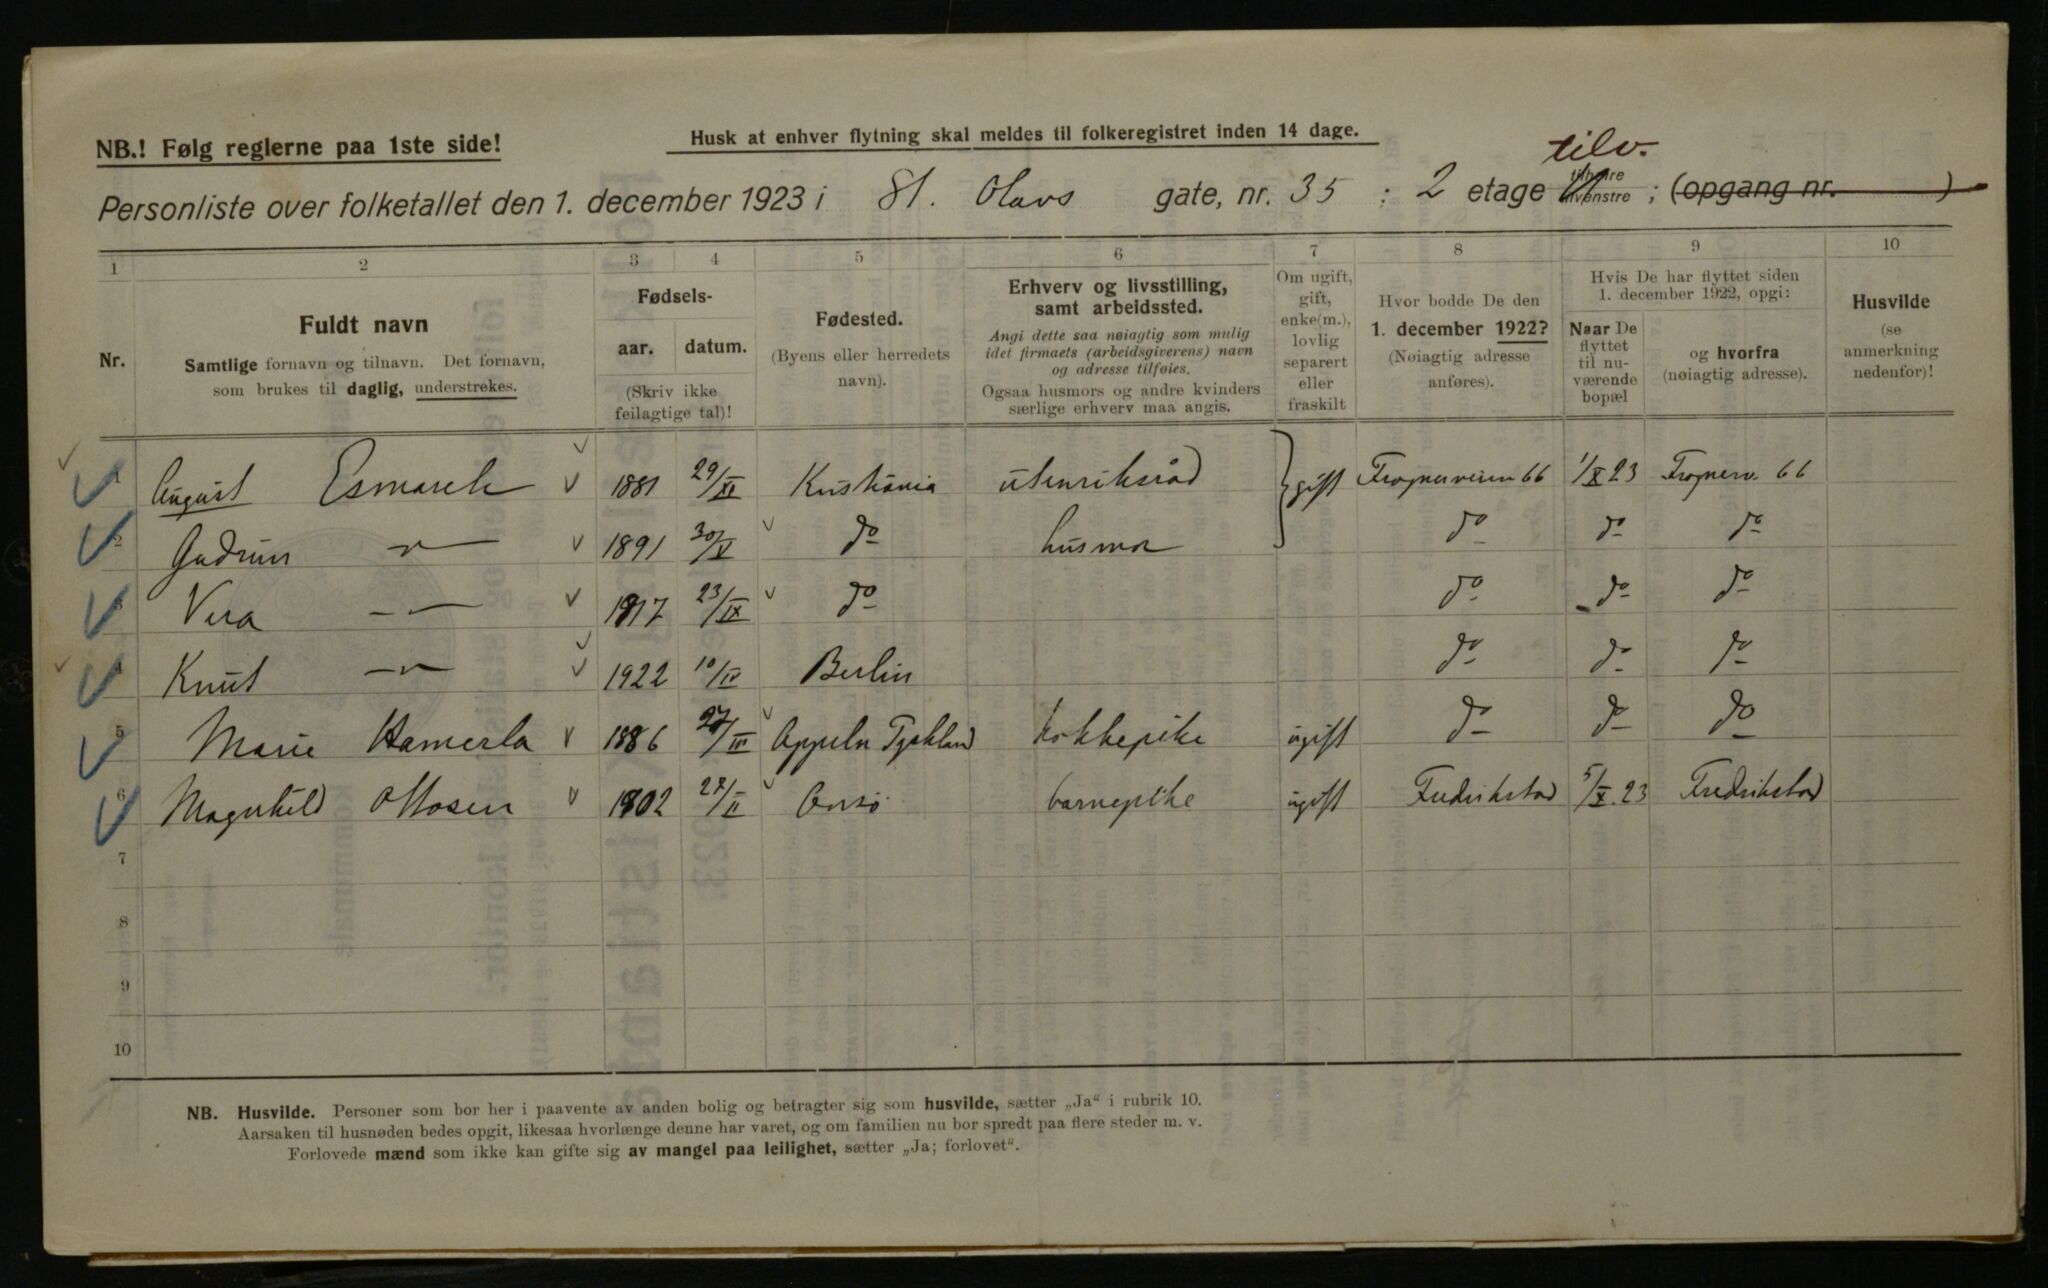 NB.! Følg reglerne paa 1ste side!
Husk at enhver flytning skal meldes til folkeregistret inden 14 dage.
tilv.
Personliste over folketallet den 1. december 1923 i St. Olavs gate, nr. 35 ; 2 etage tilhøire tilvenstre ; (opgang nr. )
1 2 3 4 5 6 7 8 9 10
Nr.
Fuldt navn
Samtlige fornavn og tilnavn. Det fornavn,
som brukes til daglig, understrekes.
Fødsels-
aar. datum.
(Skriv ikke
feilagtige tal)!
Fødested.
(Byens eller herredets
navn).
Erhverv og livsstilling,
samt arbeidssted.
Angi dette saa nøiagtig som mulig
idet firmaets (arbeidsgiverens) navn
og adresse tilføies.
Ogsaa husmors og andre kvinders
særlige erhverv maa angis.
Om ugift,
gift,
enke(m.),
lovlig
separert
eller
fraskilt
Hvor bodde De den
1. december 1922?
(Nøiagtig adresse
anføres).
Hvis De har flyttet siden
1. december 1922, opgi:
Naar De
flyttet
til nu-
værende
bopæl
og hvorfra
(nøiagtig adresse).
Husvilde
(se
anmerkning
nedenfor)!
1 August Esmarch 1881 29/XI Kristiania utenriksråd gift Frognerveien 66 1/X 23 Frognerv. 66
2 Gudrun —„— 1891 30/V do husmor do do do
3 Vera —„— 1917 23/IX do do do do
4 Knut —„— 1922 10/IV Berlin do do do
5 Marie Hamerla 1886 27/III Oppeln Tyskland kokkepike ugift do do do
6 Magnhild Ottosen 1902 27/II Onsø barnepike ugift Fredrikstad 5/X.23 Fredrikstad
7
8
9
10
NB. Husvilde. Personer som bor her i paavente av anden bolig og betragter sig som husvilde, sætter „Ja" i rubrik 10.
Aarsaken til husnøden bedes opgit, likesaa hvorlænge denne har varet, og om familien nu bor spredt paa flere steder m. v.
Forlovede mænd som ikke kan gifte sig av mangel paa leilighet, sætter „Ja; forlovet".